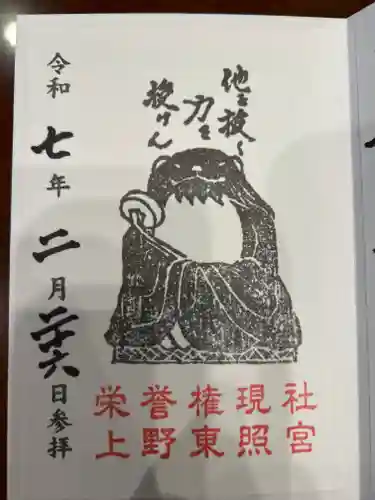 他を抜く
力を
授けん
令和七年二月二十六日参拝
栄誉権現社
上野東照宮